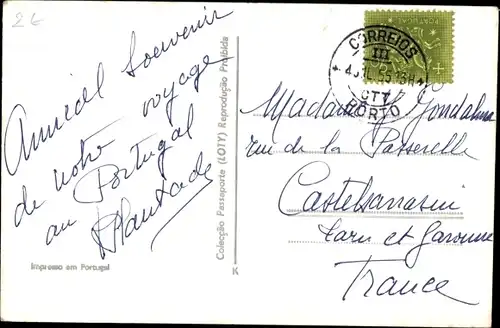 2€
Amical Souvenir
de notre voyage
au Portugal
Impresso em Portugal
Colecção Passaporte (LOTY) Reprodução Proibida
K
PORTUGAL
CORREIOS
III
CTT
PORTO
Madame
rue de la Passerelle
Castelsarrasin
Tarn et Garonne
France